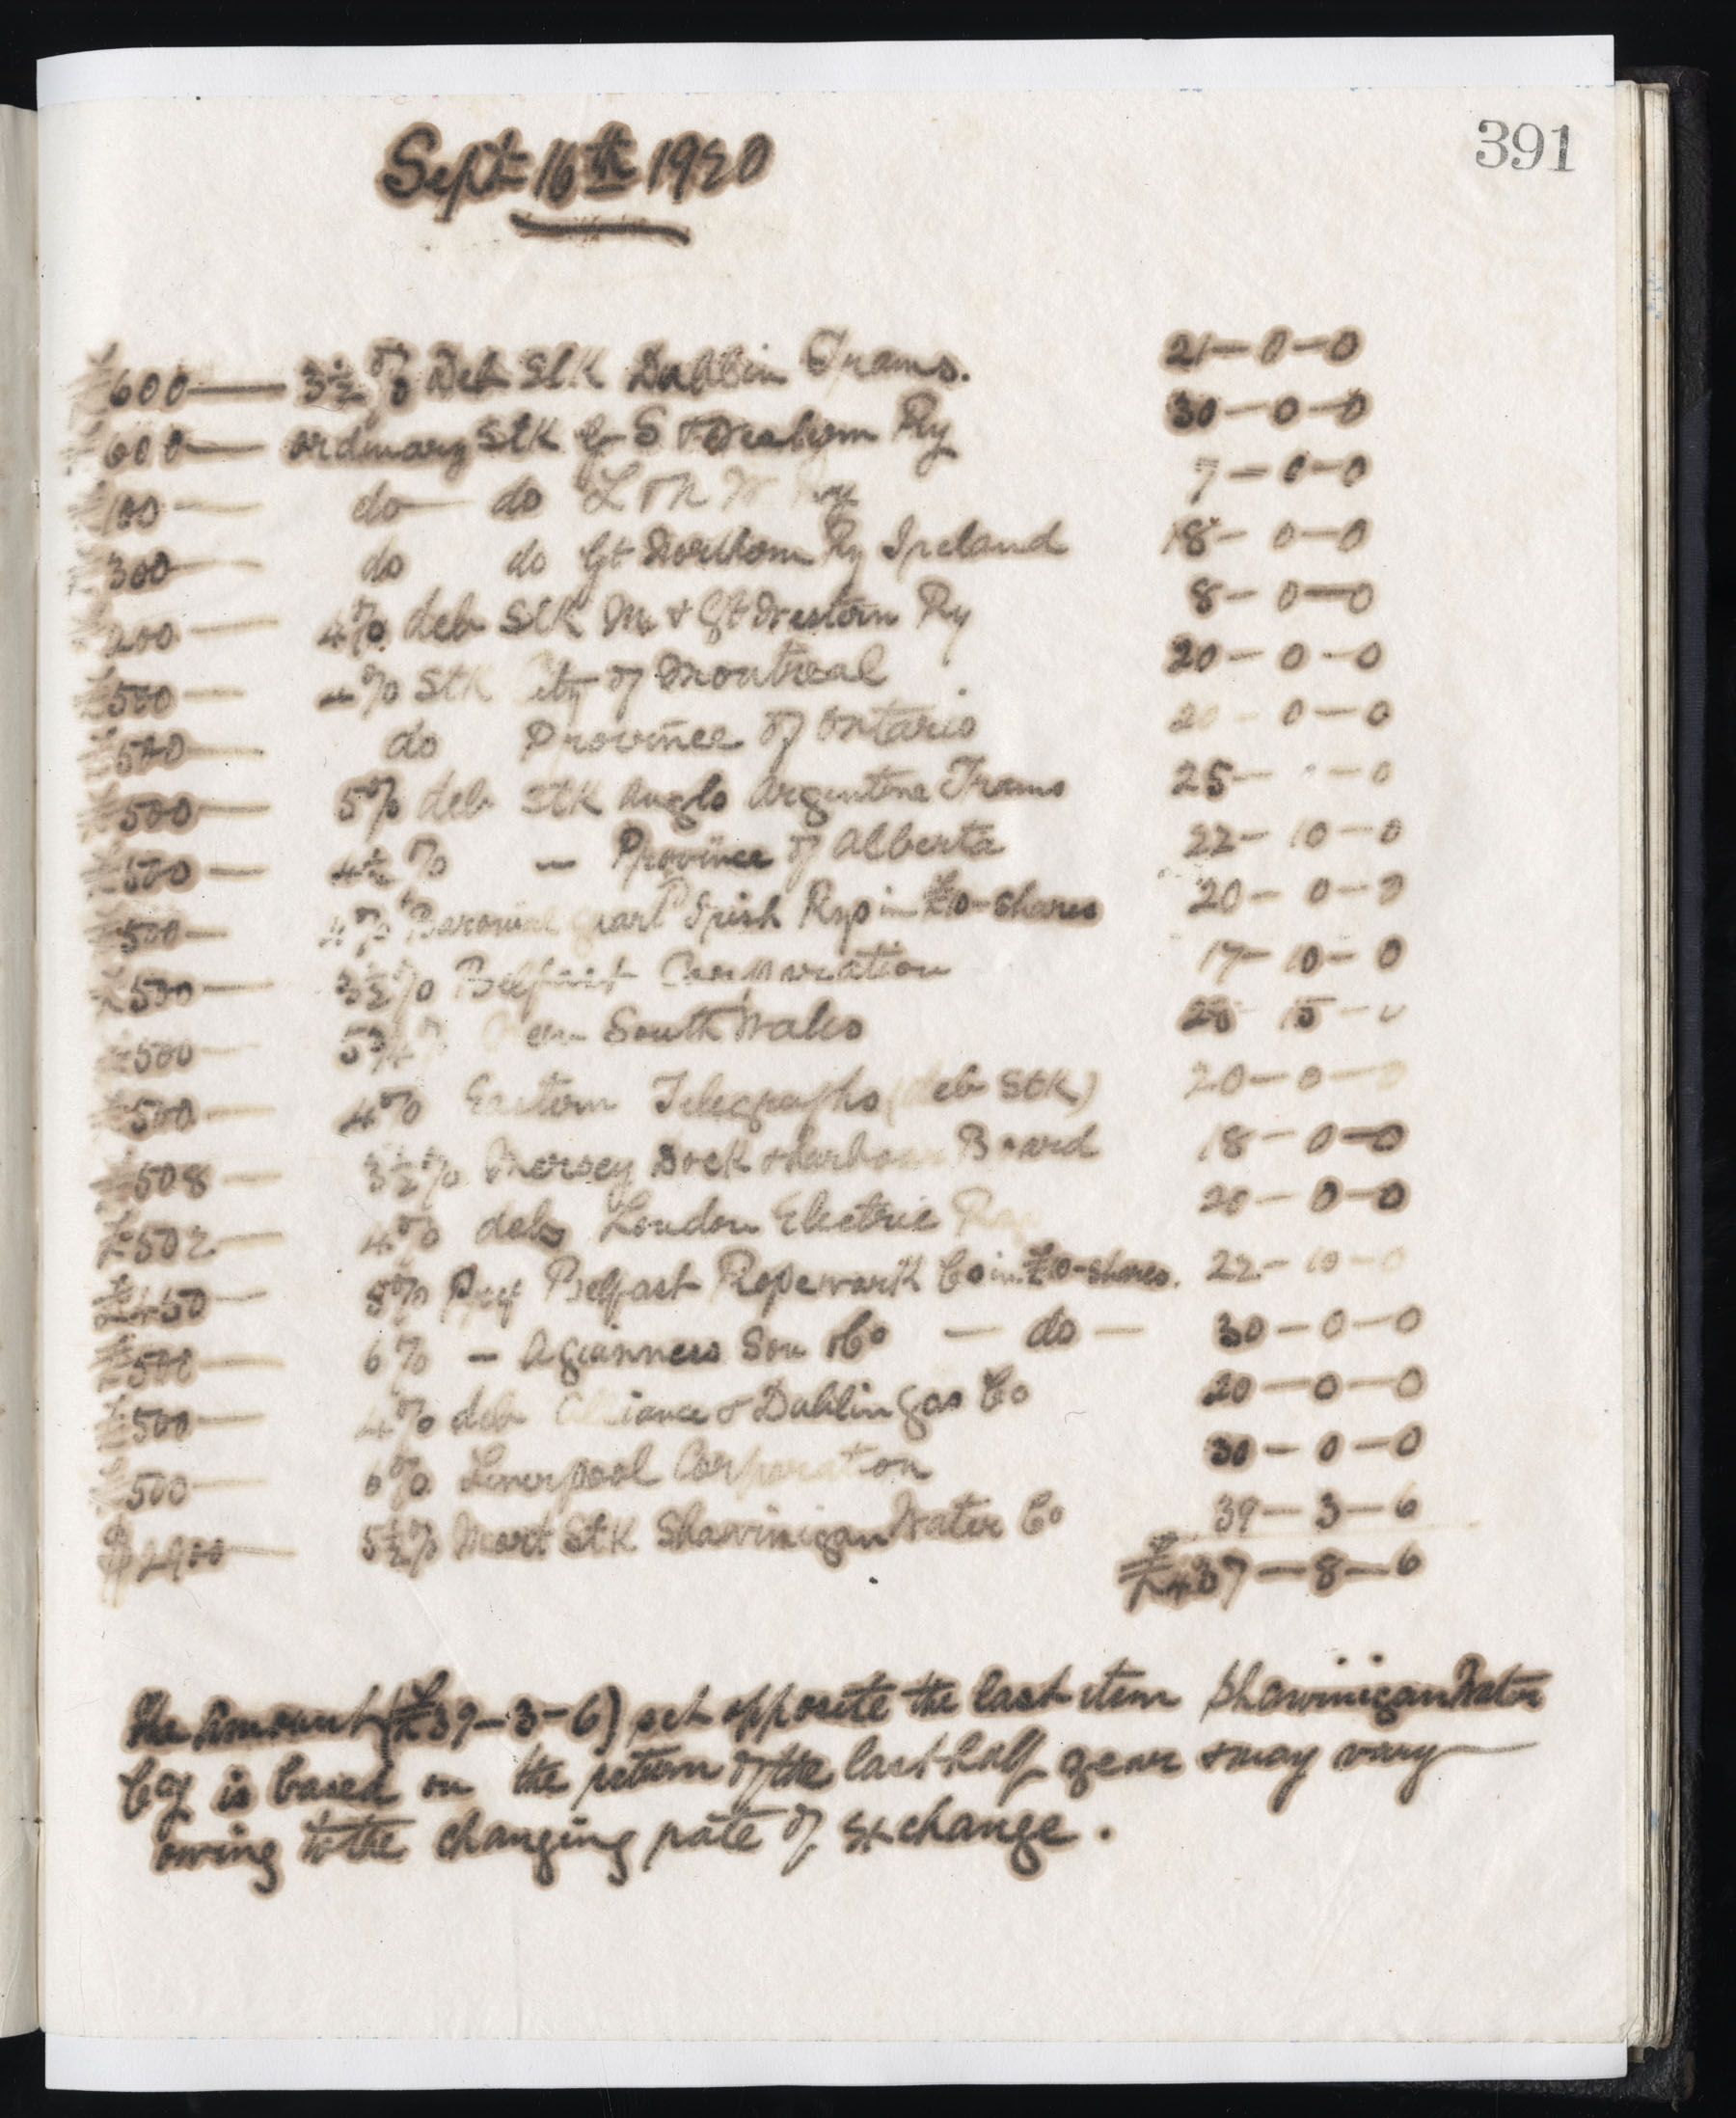 391
Sept 16th 1920
£600 — 3½% Deb Stk Dublin Trams. 21—0—0
£600 — ordinary Stk Gt S & Western Ry 30—0—0
£100 — do — do L & N W Ry 7—0—0
£300 — do do Gt Northern Ry Ireland 18—0—0
£200 — 4% deb Stk M & Gt Western Ry 8—0—0
£500 — 4% Stk City of Montreal 20—0—0
£500 — do Province of Ontario 20—0—0
£500 — 5% deb Stk Anglo Argentine Trams 25— —0
£500 — 4½% — Province of Alberta 22—10—0
£500 — 4% Baronial guart Irish Rys in £10-shares 20—0—0
£500 — 3½% Belfast Corporation 17—10—0
£500 — 5¾% New South Wales 28 15—0
£500 — 4% Eastern Telegraphs (deb Stk) 20—0—0
£508 — 3½% Mersey Dock & Harbour Board 18—0—0
£502 — 4% deb London Electric 20—0—0
£450 — 5% Pref Belfast Ropework Co in £10-shares. 22—10—0
£500 — 6% — A Guinness Son & Co — do — 30—0—0
£500 — 4% deb Alliance & Dublin Gas Co 20—0—0
£500 — 6% Liverpool Corporation 30—0—0
5½% Mort Stk Shawinigan Water Co 39—3—6
£437—8—6
The amount (£39—3—6) set opposite the last item Shawinigan Water
Coy is based on the return of the last half year & may vary
owing to the changing rate of exchange.